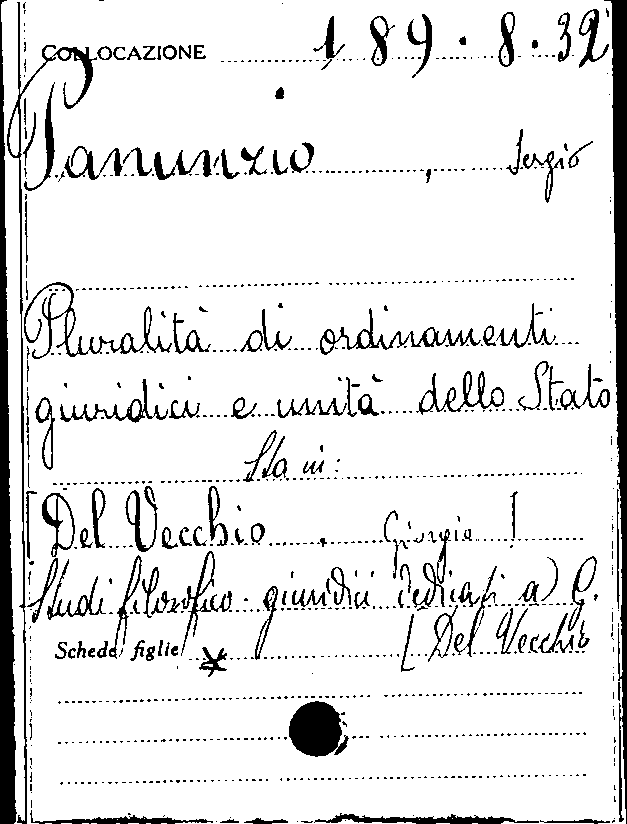 COLLOCAZIONE 189.8.32
Panunzio, Sergio
Pluralità di ordinamenti
giuridici e unità dello Stato
Sta in:
[Del Vecchio. Giorgio]
Studi filosofico-giuridici dedicati a G.
Schede figlie [Del Vecchio